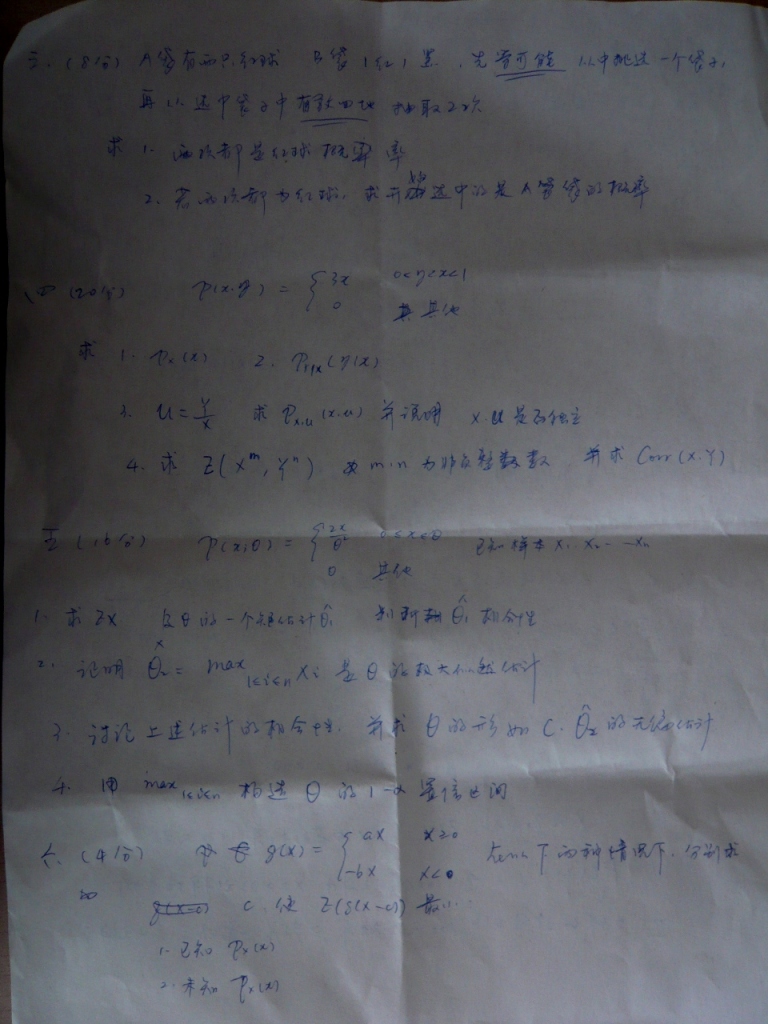 三. (8分) A袋有两只红球 B袋1红1黑, 先等可能从中挑选一个袋子,
再从选中袋子中有放回地抽取2次
求 1. 两次都是红球概率
2. 若两次都为红球, 求开始选中的是A袋的概率
四 (20分) p(x,y) = { 3x 0<y<x<1
0 其他
求 1. Px(x) 2. P_{Y|X}(y|x)
3. U = Y/X 求 P_{X,U}(x,u) 并说明 X,U是否独立
4. 求 E(X^m, Y^n) m,n为非负整数 并求 Corr(X,Y)
五 (16分) p(x;θ) = { 2x/θ² 0<x<θ 已知样本 X₁, X₂, ... Xn
0 其他
1. 求EX 及θ的一个矩估计θ̂₁ 判断θ̂₁相合性
2. 证明 θ̂₂ = max_{1≤i≤n} Xi 是θ的极大似然估计
3. 讨论上述估计的相合性, 并求θ的形如 C·θ̂₂ 的无偏估计
4. 用 max_{1≤i≤n} 构造θ的1-α置信区间
六. (4分) g(x) = { ax x≥0 在以下两种情况下, 分别求
-bx x<0
C 使 E(g(X-c)) 最小
1. 已知 Px(x)
2. 未知 Px(x)